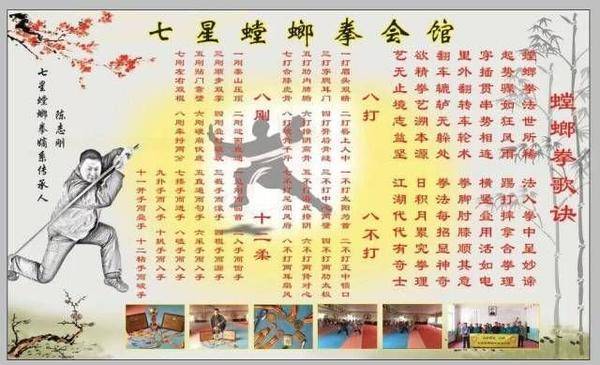 七星螳螂拳会馆
螳螂拳歌诀
螳螂拳法世所稀 法入拳中呈妙谛
起势骤如狂风雨 踢打摔拿合拳理
穿插贯串势相连 横竖并用活如电
里外翻转车轮术 拳脚肘膝顺其意
翻车辘轳无躲处 拳法每招显神奇
欲精拳艺溯本源 日积月累究拳理
艺无止境志益坚 江湖代代有奇士
八打
一打眉头双睛
二打唇上人中
三打穿腮耳门
四打背后骨缝
五打肋内肺腑
六打撩阴高骨
七打合膝虎骨
八打破骨千斤
八不打
一不打太阳为首
二不打正中锁口
三不打中心两壁
四不打两肋太极
五不打海底撩阴
六不打两肾对心
七不打尾闾风府
八不打两耳扇风
八刚
一刚泰山压顶
二刚迎面直通
三刚顺步双掌
五刚贴门靠壁
六刚硬崩伏底
七刚左右双棍
八刚车转两分
十二柔
一见刚而回首
二入手而偷手
三截手而滚手
六采手而入手
七搂手而进手
八磕手而入手
九扑手而入手
十挑手而入手
十一开手而叠手
十二粘手而破手
陈志刚
七星螳螂拳嫡系传承人